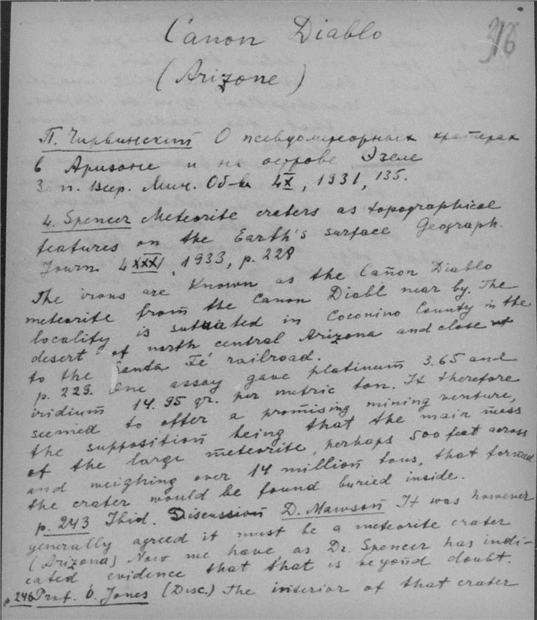 Cañon Diablo
(Arizone)
П. Чирвинский О псевдометеорных кратерах
в Аризоне и на острове Эзеле
Зп. Всер. Мин. Об-ва 4X, 1931, 135.
4. Spencer Meteorite craters as topographical
features on the Earth's surface Geograph.
Journ 4XXXI, 1933, p. 228
The irons are known as the Cañon Diablo
meteorite from the Canon Diabl near by. The
locality is situated in Coconino County in the
desert of north central Arizona and close
to the Santa Fé railroad.
p. 229. One assay gave platinum 3.65 and
iridium 14.95 gr. per metric ton. It therefore
seemed to offer a promising mining venture,
the supposition being that the main mess
of the large meteorite, perhaps 500 feet across
and weighing over 14 million tons, that formed
the crater would be found buried inside.
p. 243 Ibid. Discussion D. Mawson It was however
generally agreed it must be a meteorite crater
(Arizona) Now we have as Dr. Spencer has indi-
cated evidence that that is beyond doubt.
p. 246 Prof. O. Jones (Disc.) The interior of that crater